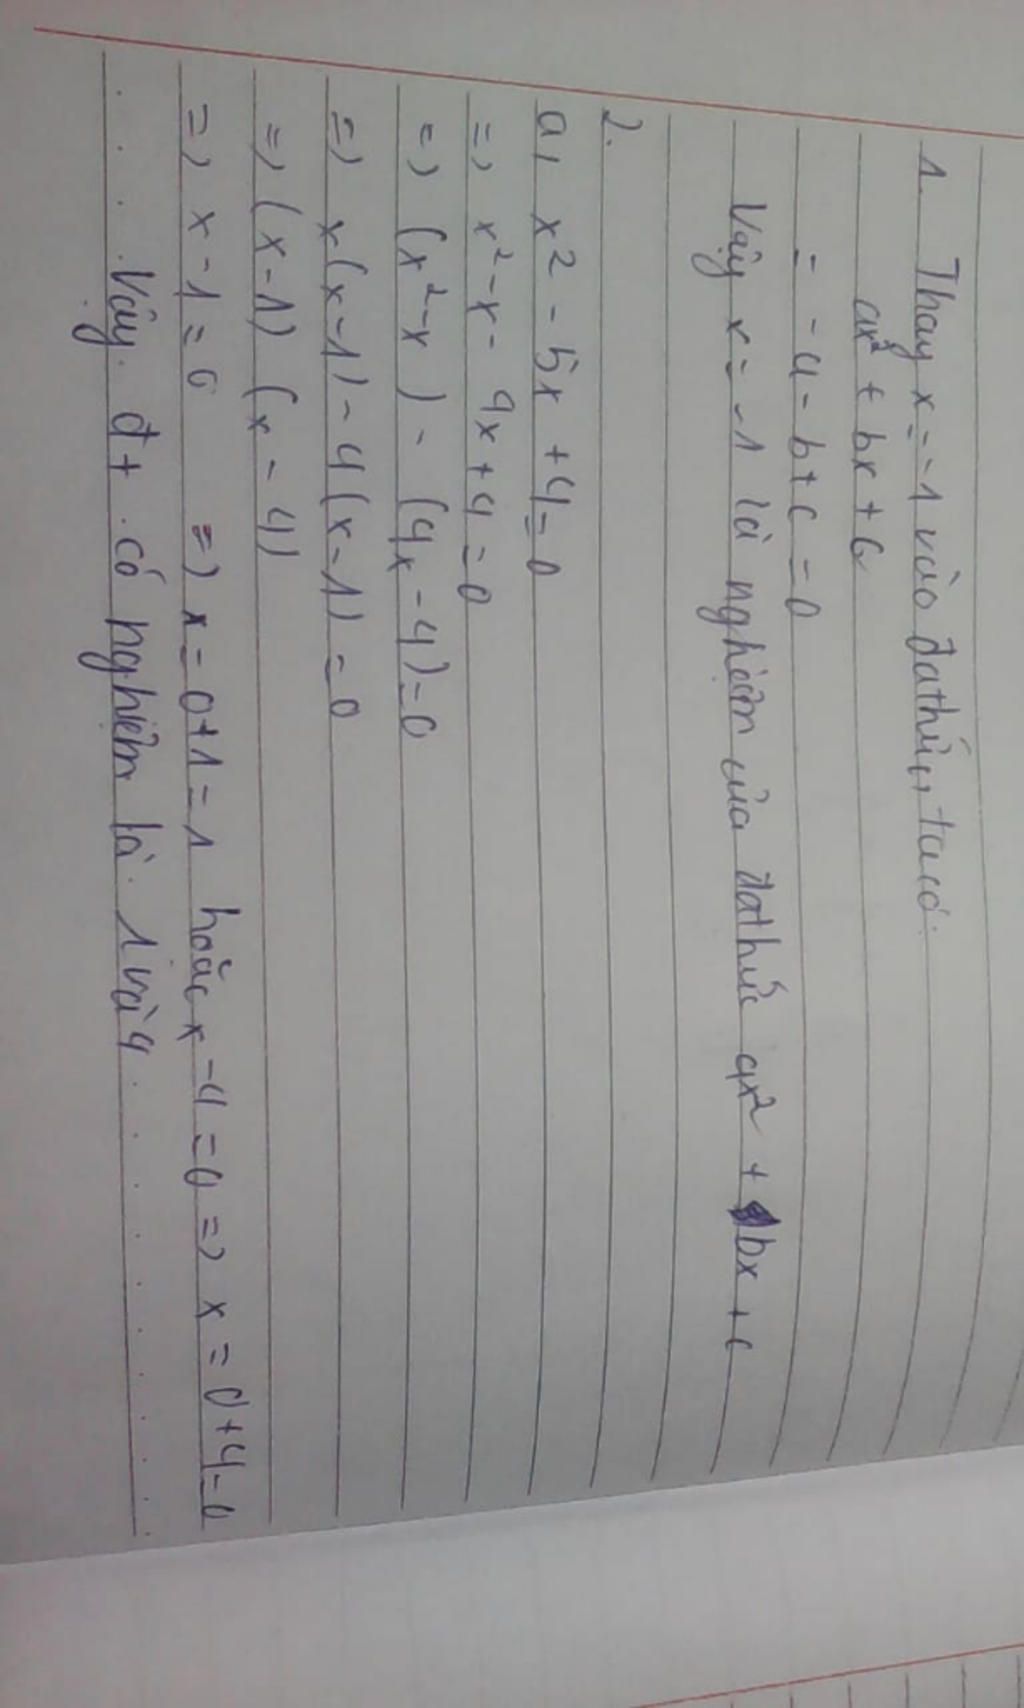 1. Thay x = -1 vào đa thức, ta có:
ax² + bx + c
= -a - b + c = 0
Vậy x = -1 là nghiệm của đa thức ax² + bx + c
2.
a, x² - 5x + 4 = 0
=> x² - x - 4x + 4 = 0
=> (x² - x) - (4x - 4) = 0
=> x(x - 1) - 4(x - 1) = 0
=> (x - 1) (x - 4)
=> x - 1 = 0 => x = 0 + 1 = 1 hoặc x - 4 = 0 => x = 0 + 4 = 0
Vậy đt có nghiệm là 1 và 4